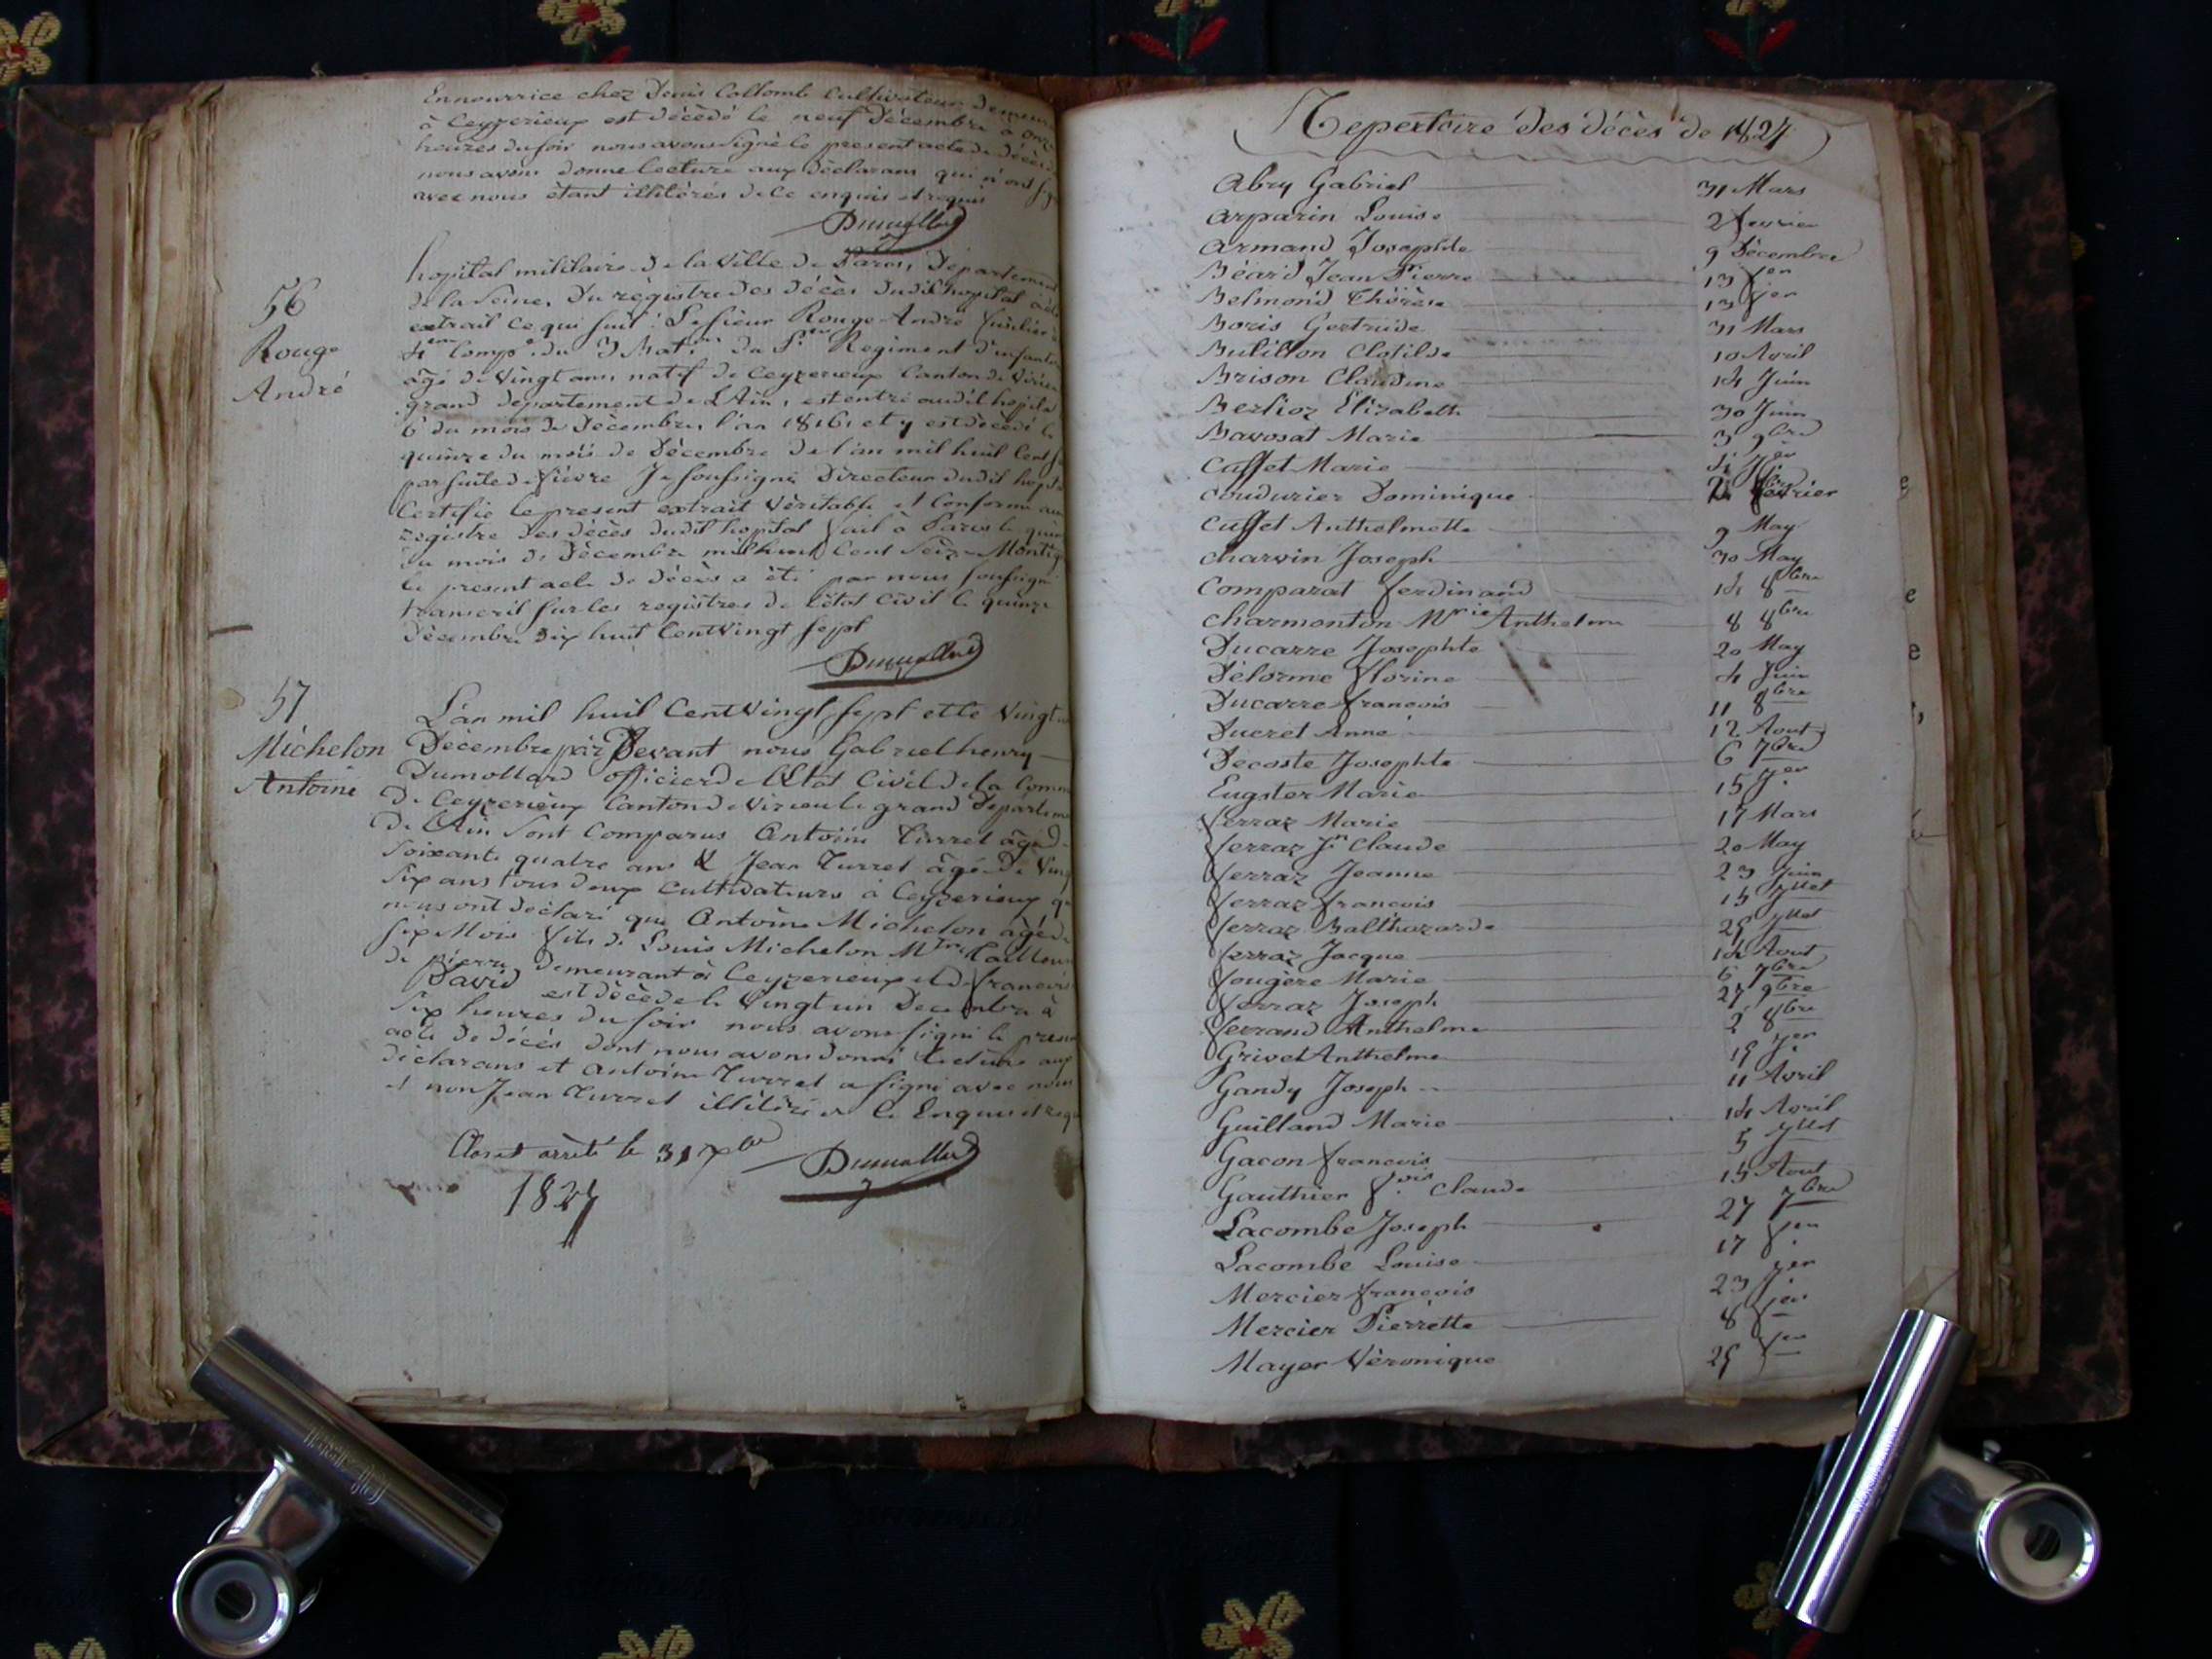 Ennourrice chez Denis Collomb Cultivateur
à Ceyzerieux est décédé le neuf Décembre à onze
heures du soir nous avons signé le present acte de décès
nous avons donné lecture aux déclarans qui n'ont
avec nous étant illitérés de ce enquis et requis
Dumollard
56
Rouge
André
hopital militaire de la Ville de Paris, Departement
de la Seine, Du règistre des décès dudit hopital
extrait ce qui suit : Le sieur Rouge André fusilier
4em Comp.e du 3 Bat.on du Regiment d'infant
âgé de Vingt ans natif de Ceyzerieux Canton de Virieu
grand departement de L'Ain, est entré audit hopital
6 du mois de Décembre, l'an 1816, et y est décédé le
quinze du mois de Décembre de l'an mil huit Cent
par suite de fièvre Je soussigné Directeur dudit hopit
Certifie le present extrait Vèritable et Conforme au
registre des décès dudit hopital fait à Paris le quin
du mois de Décembre mil huit Cent Seize
le present acte de décès a été par nous soussigné
transcrit sur les registres de l'état Civil le quinze
Décembre dix huit Cent Vingt sept
Dumollard
57
Michelon
Antoine
L'an mil huit Cent Vingt sept et le Vingt
Décembre par Devant nous Gabriel henry
Dumollard officier de l'Etat Civil de la Comm
De Ceyzerieux Canton de Virieu le grand Départeme
De l'Ain Sont Comparus Antoine Turrel âgé d
Soixante quatre ans & Jean Turrel âgé de Ving
six ans tous deux Cultivateurs à Ceyzerieux q
nous ont déclaré que Antoine Michelon âgé de
six Mois fils de Louis Michelon M.tre tailleur
de pierre demeurant à Ceyzerieux et de francois
David est décédé le Vingt un Décembre à
six heures du soir nous avons signé le presen
acte de décès dont nous avons donné lecture aux
déclarans et Antoine Turrel a signé avec nous
et non Jean Turrel illitéré de ce Enquis et req
Clos et arrêté le 31 Xbre
Dumollard
1827
Repertoire des décès de 1827
Abry Gabriel 31 Mars
Arparin Louise 2 fevrier
Armand Josephte 9 Décembre
Béard Jean Pierre 13 jer
Belmond Thérèse 13 jer
Boris Gertruide 31 Mars
Bulillon Clotilde 10 Avril
Brison Claudine 14 Juin
Berlioz Elizabeth 30 Juin
Bavosat Marie 3 9bre
Caffet Marie
Coudurier Dominique
Cuffet Anthelmette 9 May
Charvin Joseph 30 May
Comparat ferdinand 14 8bre
Charmonton Mrie Anthelme 8 8bre
Ducarre Josephte 20 May
Délorme florine 4 Juin
Ducarre francois 11 8bre
Ducret Anne 12 Aout
Decoste Josephte 6 7bre
Eugster Marie 15 jer
ferraz Marie 17 Mars
ferraz Jn Claude 20 May
ferraz Jeanne 23 Juin
ferraz francois 15 jllet
ferraz Balthazarde 25 jllet
ferraz Jacque 14 Aout
fougère Marie 6 7bre
ferraz Joseph 27 9bre
ferrand Anthelme 2 8bre
Grivet Anthelme 19 jer
Gandy Joseph 11 Avril
Guilland Marie 14 Avril
Gacon francois 5 jllet
Gauthier fois Claude 15 Aout
Lacombe Joseph 27 7bre
Lacombe Louise 17 jer
Mercier francois 23 jer
Mercier Pierrette 8 jer
Mayer Vèronique 25 jer